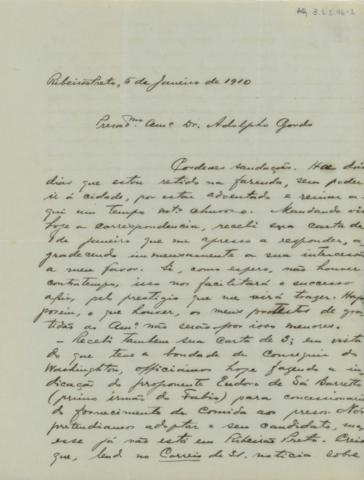 Ribeirão Preto, 5 de Janeiro de 1910
Presad.mo Am.o Dr. Adolpho Gordo
Cordeaes saudações. Ha dois
dias que estou retido na fazenda, sem poder
ir á cidade, por estar adoentado e reinar a-
qui um tempo mt.o chuvoso. Mandando vir
hoje a correspondencia, recebi sua carta de
1 de Janeiro que me apresso a responder, a-
gradecendo immensamente a sua intercessão
a meu favor. Si, como espero, não houver
contratempo, isso nos facilitará o successo
aqui, pelo prestigio que me virá trazer. Haja
porem, o que houver, os meus protestos de gra-
tidão ao Am.o não serão por isso menores.
– Recebi tambem sua carta de 3; em vista
do que teve a bondade de conseguir do
Washington, officiamos hoje fazendo a in-
dicação do proponente Eudoro de Sá Barretto
(primo irmão do Fabio) para concessionario
do fornecimento de comida aos presos. Nós
pretendiamos adoptar o seu candidato, mas
esse já não está em Ribeirão Preto. Creio
que, lendo no Correio de 31, noticia sobre